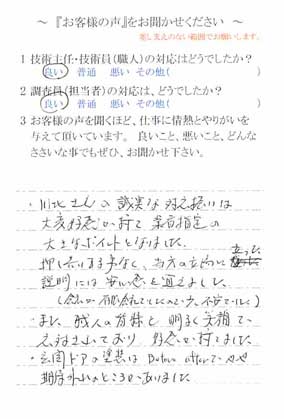 ～『お客様の声』をお聞かせください～
差し支えのない範囲でお願いします。
1 技術主任・技術員(職人)の対応はどうでしたか?
良い 普通 悪い その他( )
2 調査員(担当者)の対応は、どうでしたか?
良い 普通 悪い その他( )
3 お客様の声を聞くほど、仕事に情熱とやりがいを
与えて頂いています。 良いこと、悪いこと、どんな
ささいな事でもぜひ、お聞かせ下さい。
・川北さんの誠実な対応振りは
大変好感が持て 業者指定の
大きなポイントとなりました。
押し売りする事なく、当方の立場に 立った
説明には 安心感を覚えました
・また、職人の方 明るく
好感が持てました。
・玄関ドアの塗装は before afterで やや
期待外れのところがありました